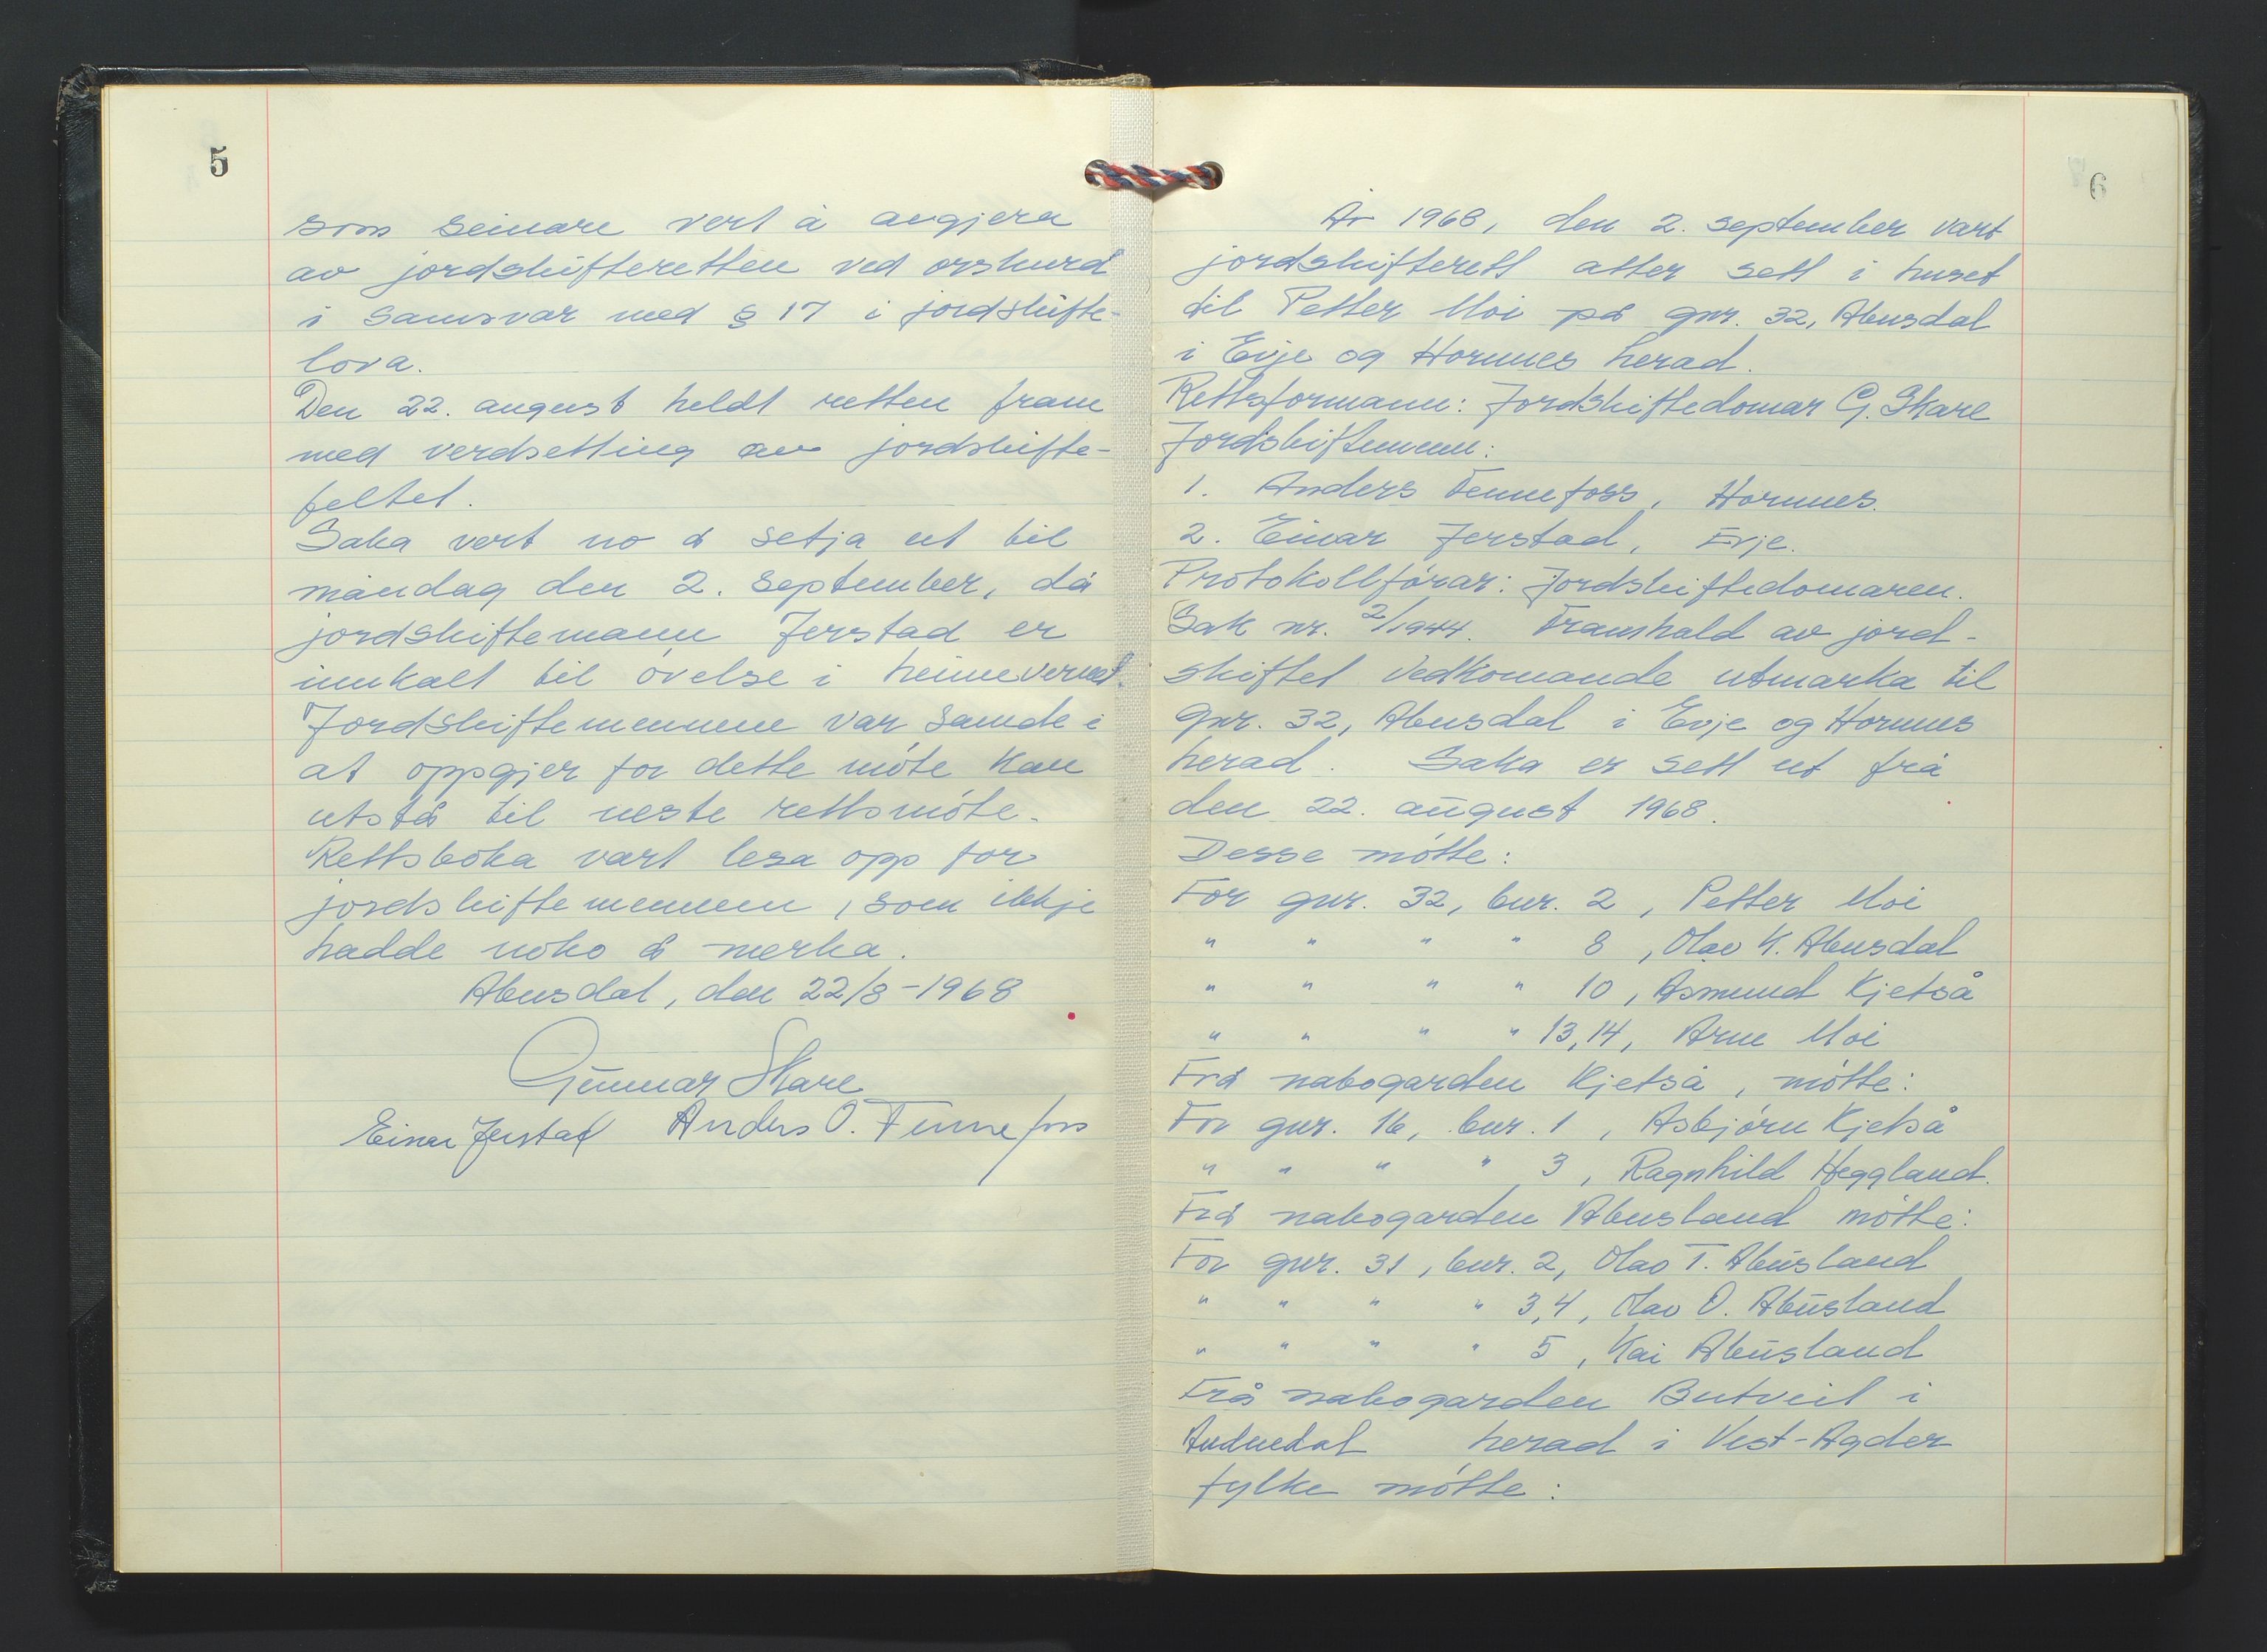 5
som seinare vert å avgjera
av jordskifteretten ved orskurd
i samsvar med § 17 i jordskifte-
lova.
Den 22. august heldt retten fram
med verdsetting av jordskifte-
feltet.
Saka vert no å setja ut til
måndag den 2. september, då
jordskiftemann Jerstad er
innkalt til óvelse i heimevernet.
Jordskiftemennene var samde i
at oppgjer for dette móte kan
utstå til neste rettsmóte.
Rettsboka vart lesa opp for
jordskiftemennene, som ikkje
hadde noko å merka.
Abusdal, den 22/8-1968
Gunnar Skare
Einar Jerstad Anders O. Fennefoss
6
År 1968, den 2. september vart
jordskifterett atter sett i huset
til Petter Moi på gnr. 32, Abusdal
i Evje og Hornnes herad.
Rettsformann: Jordskiftedomar G. Skare
Jordskiftemenn:
1. Anders Fennefoss, Hornnes.
2. Einar Jerstad, Evje.
Protokollfórar: Jordskiftedomaren.
Sak nr. 2/1944. Framhald av jord-
skiftet vedkomande utmarka til
gnr. 32, Abusdal i Evje og Hornnes
herad. Saka er sett ut frå
den 22. august 1968.
Desse mótte:
For gnr. 32, bnr. 2, Petter Moi
" " " " 8, Olav K. Abusdal
" " " " 10, Asmund Kjetså
" " " " 13,14, Arne Moi
Frå nabogarden Kjetså, mótte:
For gnr. 16, bnr. 1, Asbjórn Kjetså
" " " " 3, Ragnhild Heggland.
Frå nabogarden Abusland mótte:
For gnr. 31, bnr. 2, Olav T. Abusland
" " " " 3,4, Olav O. Abusland
" " " " 5, Kai Abusland
Frå nabogarden Butveit i
Audnedal herad i Vest-Agder
fylke mótte: